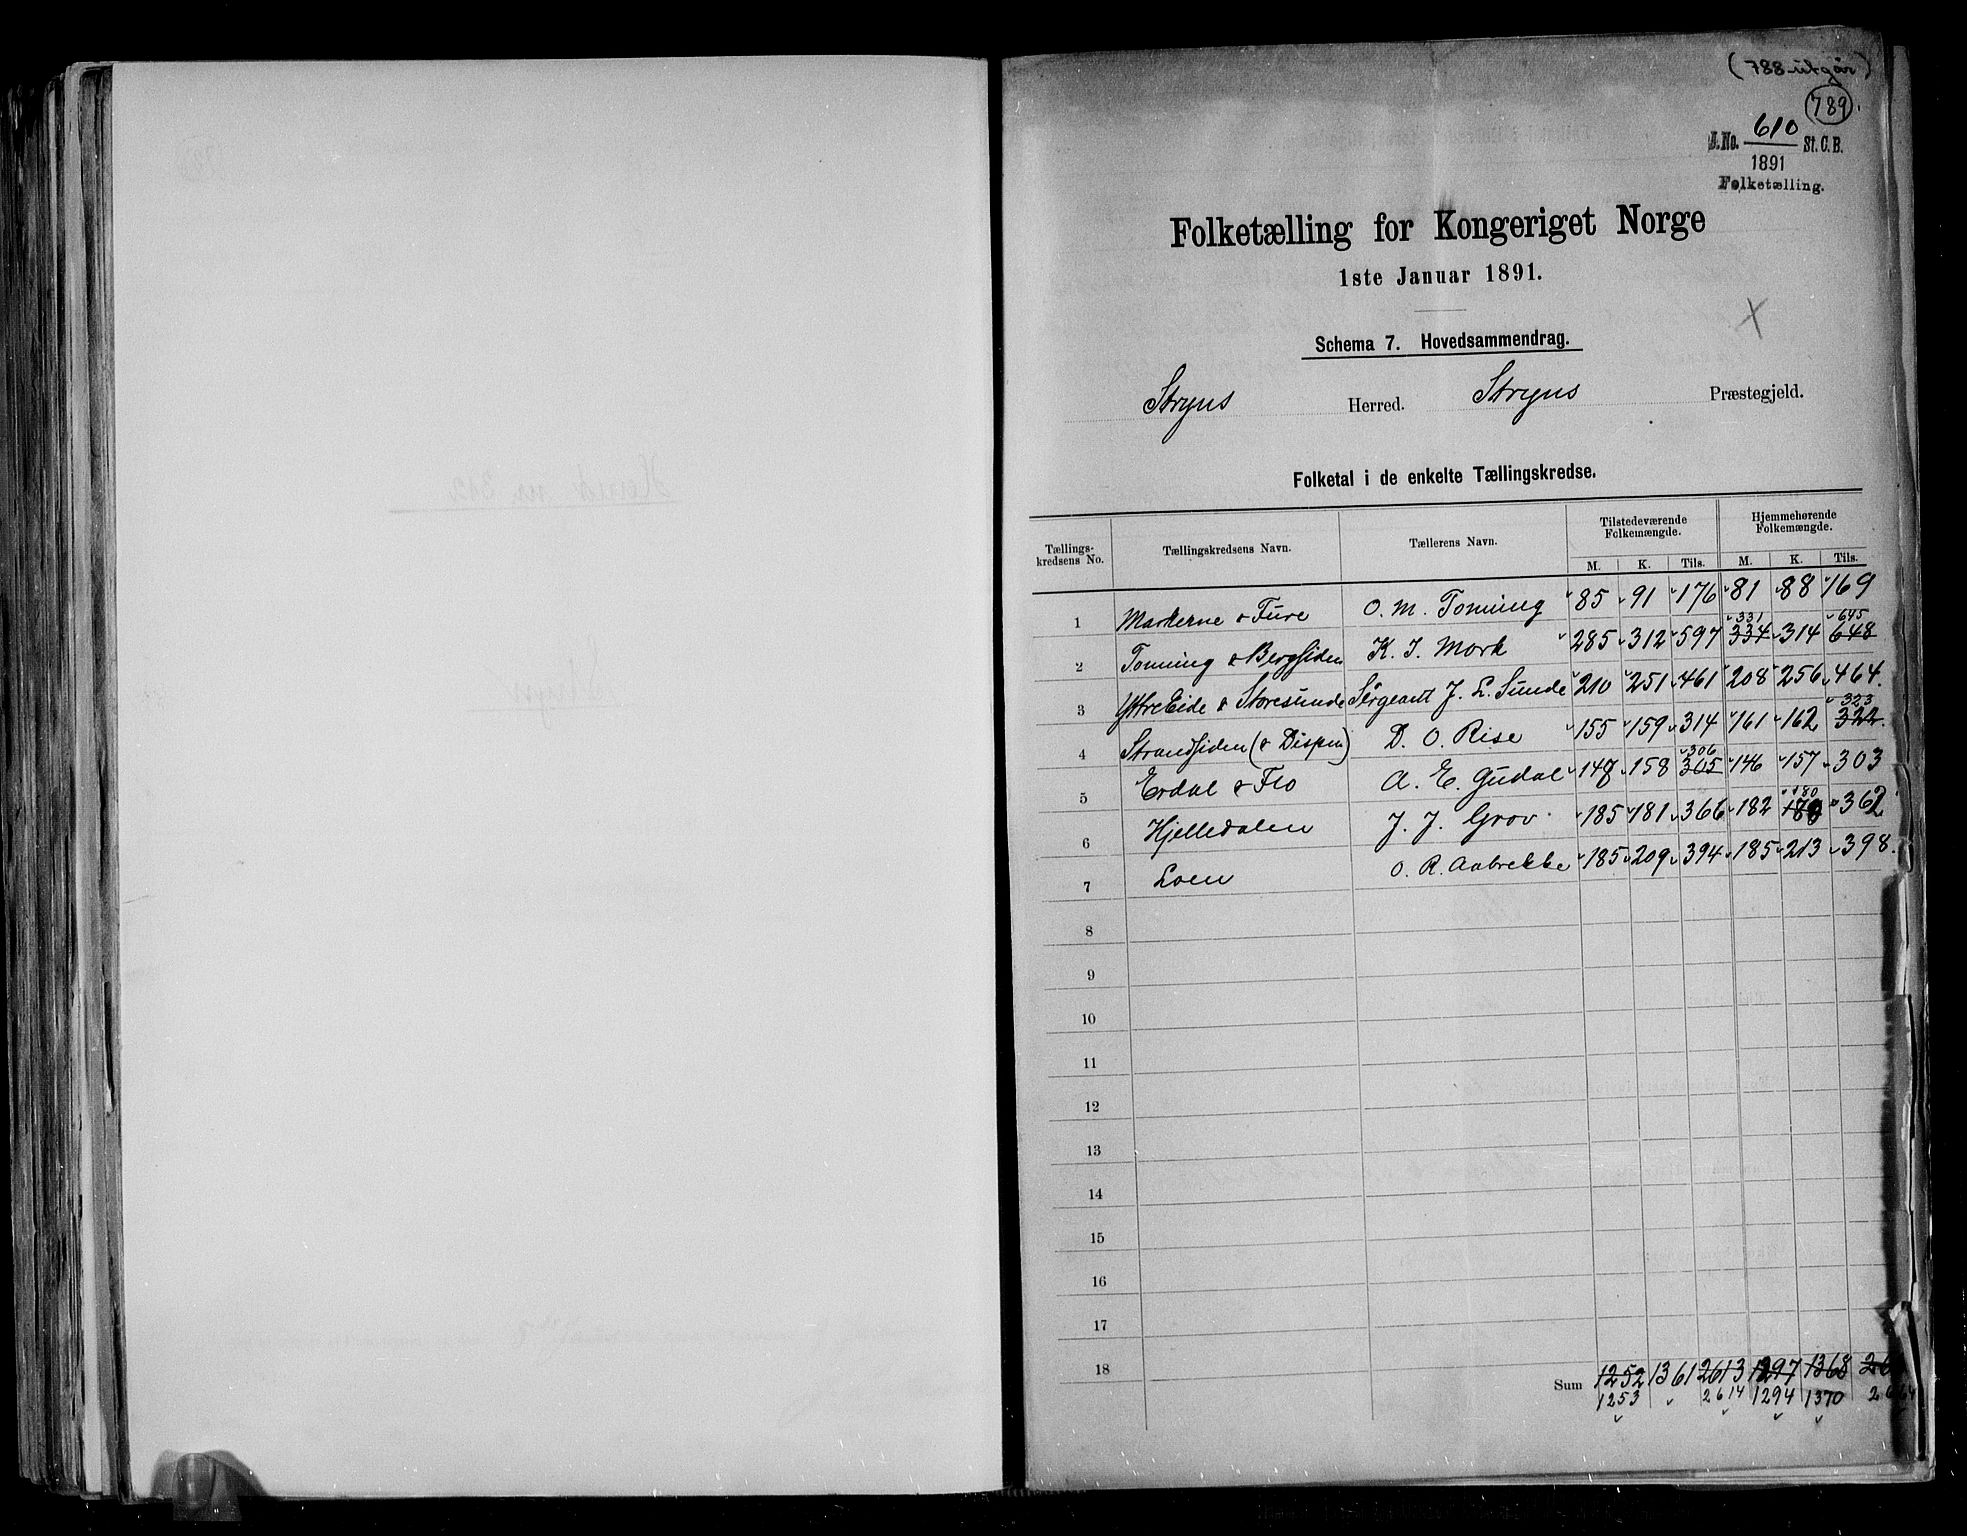 (788 utgår)
789.
J.No. 610 St. C. B.
1891
Folketælling.
Folketælling for Kongeriget Norge
1ste Januar 1891.
Schema 7. Hovedsammendrag.
Stryns Herred. Stryns Præstegjeld.
Folketal i de enkelte Tællingskredse.
Tællings-kredsens No. Tællingskredsens Navn. Tællerens Navn. Tilstedeværende Folkemængde. Hjemmehørende Folkemængde.
M. K. Tils. M. K. Tils.
1 Markerne & Fure O. M. Tonning 85 91 176 81 88 169
331 645
2 Tonning & Bergsiden K. J. Mork 285 312 597 334 314 648
3 Ytre Eide & Storesunde Sergeant J. L. Sunde 210 251 461 208 256 464.
323
4 Strandsiden (& Dispen) D. O. Rise 155 159 314 161 162 322.
306
5 Erdal & Flo A. E. Gudal 148 158 305 146 157 303
180
6 Hjelledalen J. J. Grov 185 181 366 182 362
7 Loen O. R. Aabrekke 185 209 394 185 213 398.
8
9
10
11
12
13
14
15
16
17
18
Sum 1252 1361 2613 1297 1368
1253 2614 1294 1370 2664